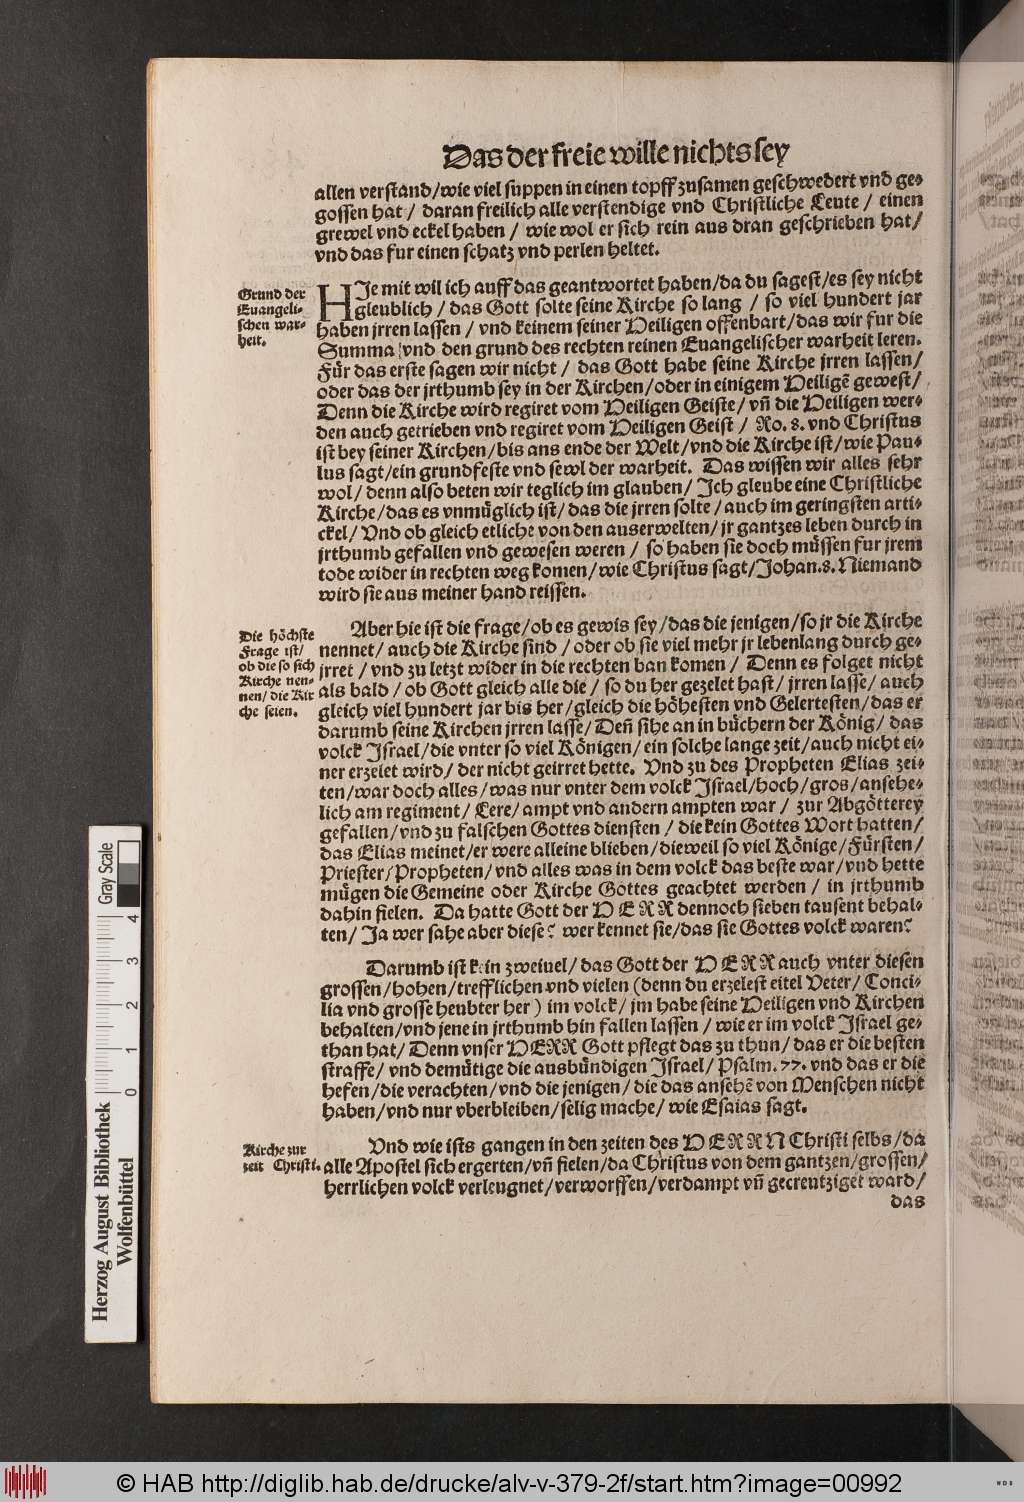 Das der freie wille nichts sey
allen verstand/wie viel suppen in einen topff zusamen geschwedert vnd ge-
gossen hat / daran freilich alle verstendige vnd Christliche Leute / einen
grewel vnd eckel haben / wie wol er sich rein aus dran geschrieben hat/
vnd das fur einen schatz vnd perlen heltet.
Grund der
Euangeli-
schen war-
heit.
HJe mit wil ich auff das geantwortet haben/da du sagest/es sey nicht
gleublich / das Gott solte seine Kirche so lang / so viel hundert jar
haben jrren lassen / vnd keinem seiner Heiligen offenbart/das wir fur die
Summa vnd den grund des rechten reinen Euangelischer warheit leren.
Für das erste sagen wir nicht / das Gott habe seine Kirche jrren lassen/
oder das der jrthumb sey in der Kirchen/oder in einigem Heiligē gewest/
Denn die Kirche wird regiret vom Heiligen Geiste/ vñ die Heiligen wer-
den auch getrieben vnd regiret vom Heiligen Geist / Ro. 8. vnd Christus
ist bey seiner Kirchen/bis ans ende der Welt/vnd die Kirche ist/wie Pau-
lus sagt/ein grundfeste vnd sewl der warheit. Das wissen wir alles sehr
wol/ denn also beten wir teglich im glauben/ Jch gleube eine Christliche
Kirche/das es vnmüglich ist/das die jrren solte/auch im geringsten arti-
ckel/ Vnd ob gleich etliche von den auserwelten/jr gantzes leben durch in
jrthumb gefallen vnd gewesen weren / so haben sie doch müssen fur jrem
tode wider in rechten weg komen/wie Christus sagt/Johan.8. Niemand
wird sie aus meiner hand reissen.
Die höchste
Frage ist/
ob die so sich
Kirche nen-
nen/ die Kir
che seien.
Aber hie ist die frage/ob es gewis sey/das die jenigen/so jr die Kirche
nennet/auch die Kirche sind / oder ob sie viel mehr jr lebenlang durch ge-
jrret / vnd zu letzt wider in die rechten ban komen / Denn es folget nicht
als bald / ob Gott gleich alle die / so du her gezelet hast/ jrren lasse/ auch
gleich viel hundert jar bis her/gleich die höhesten vnd Gelertesten/das er
darumb seine Kirchen jrren lasse/ Deñ sihe an in büchern der König/ das
volck Jsrael/die vnter so viel Königen/ein solche lange zeit/auch nicht ei-
ner erzelet wird/ der nicht geirret hette. Vnd zu des Propheten Elias zei-
ten/war doch alles/was nur vnter dem volck Jsrael/hoch/gros/ansehe-
lich am regiment/ Lere/ ampt vnd andern ampten war / zur Abgötterey
gefallen/vnd zu falschen Gottes diensten / die kein Gottes Wort hatten/
das Elias meinet/er were alleine blieben/dieweil so viel Könige/Fürsten/
Priester/Propheten/ vnd alles was in dem volck das beste war/vnd hette
mügen die Gemeine oder Kirche Gottes geachtet werden / in jrthumb
dahin fielen. Da hatte Gott der HERR dennoch sieben tausent behal-
ten/ Ja wer sahe aber diese? wer kennet sie/das sie Gottes volck waren?
Darumb ist kein zweiuel/das Gott der HERR auch vnter diesen
grossen/hohen/trefflichen vnd vielen (denn du erzelest eitel Veter/ Conci-
lia vnd grosse heubter her) im volck/ jm habe seine Heiligen vnd Kirchen
behalten/vnd jene in jrthumb hin fallen lassen / wie er im volck Jsrael ge-
than hat/ Denn vnser HERR Gott pflegt das zu thun/das er die besten
straffe/ vnd demütige die ausbündigen Jsrael/ Psalm. 77. vnd das er die
hefen/die verachten/vnd die jenigen/ die das ansehē von Menschen nicht
haben/vnd nur vberbleiben/selig mache/ wie Esaias sagt.
Kirche zur
zeit Christi.
Vnd wie ists gangen in den zeiten des HERRN Christi selbs/da
alle Apostel sich ergerten/vñ fielen/da Christus von dem gantzen/grossen/
herrlichen volck verleugnet/verworffen/verdampt vñ gecreutziget ward/
das
Herzog August Bibliothek
Wolfenbüttel
Gray Scale
0 1 2 3 4
© HAB http://diglib.hab.de/drucke/alv-v-379-2f/start.htm?image=00992